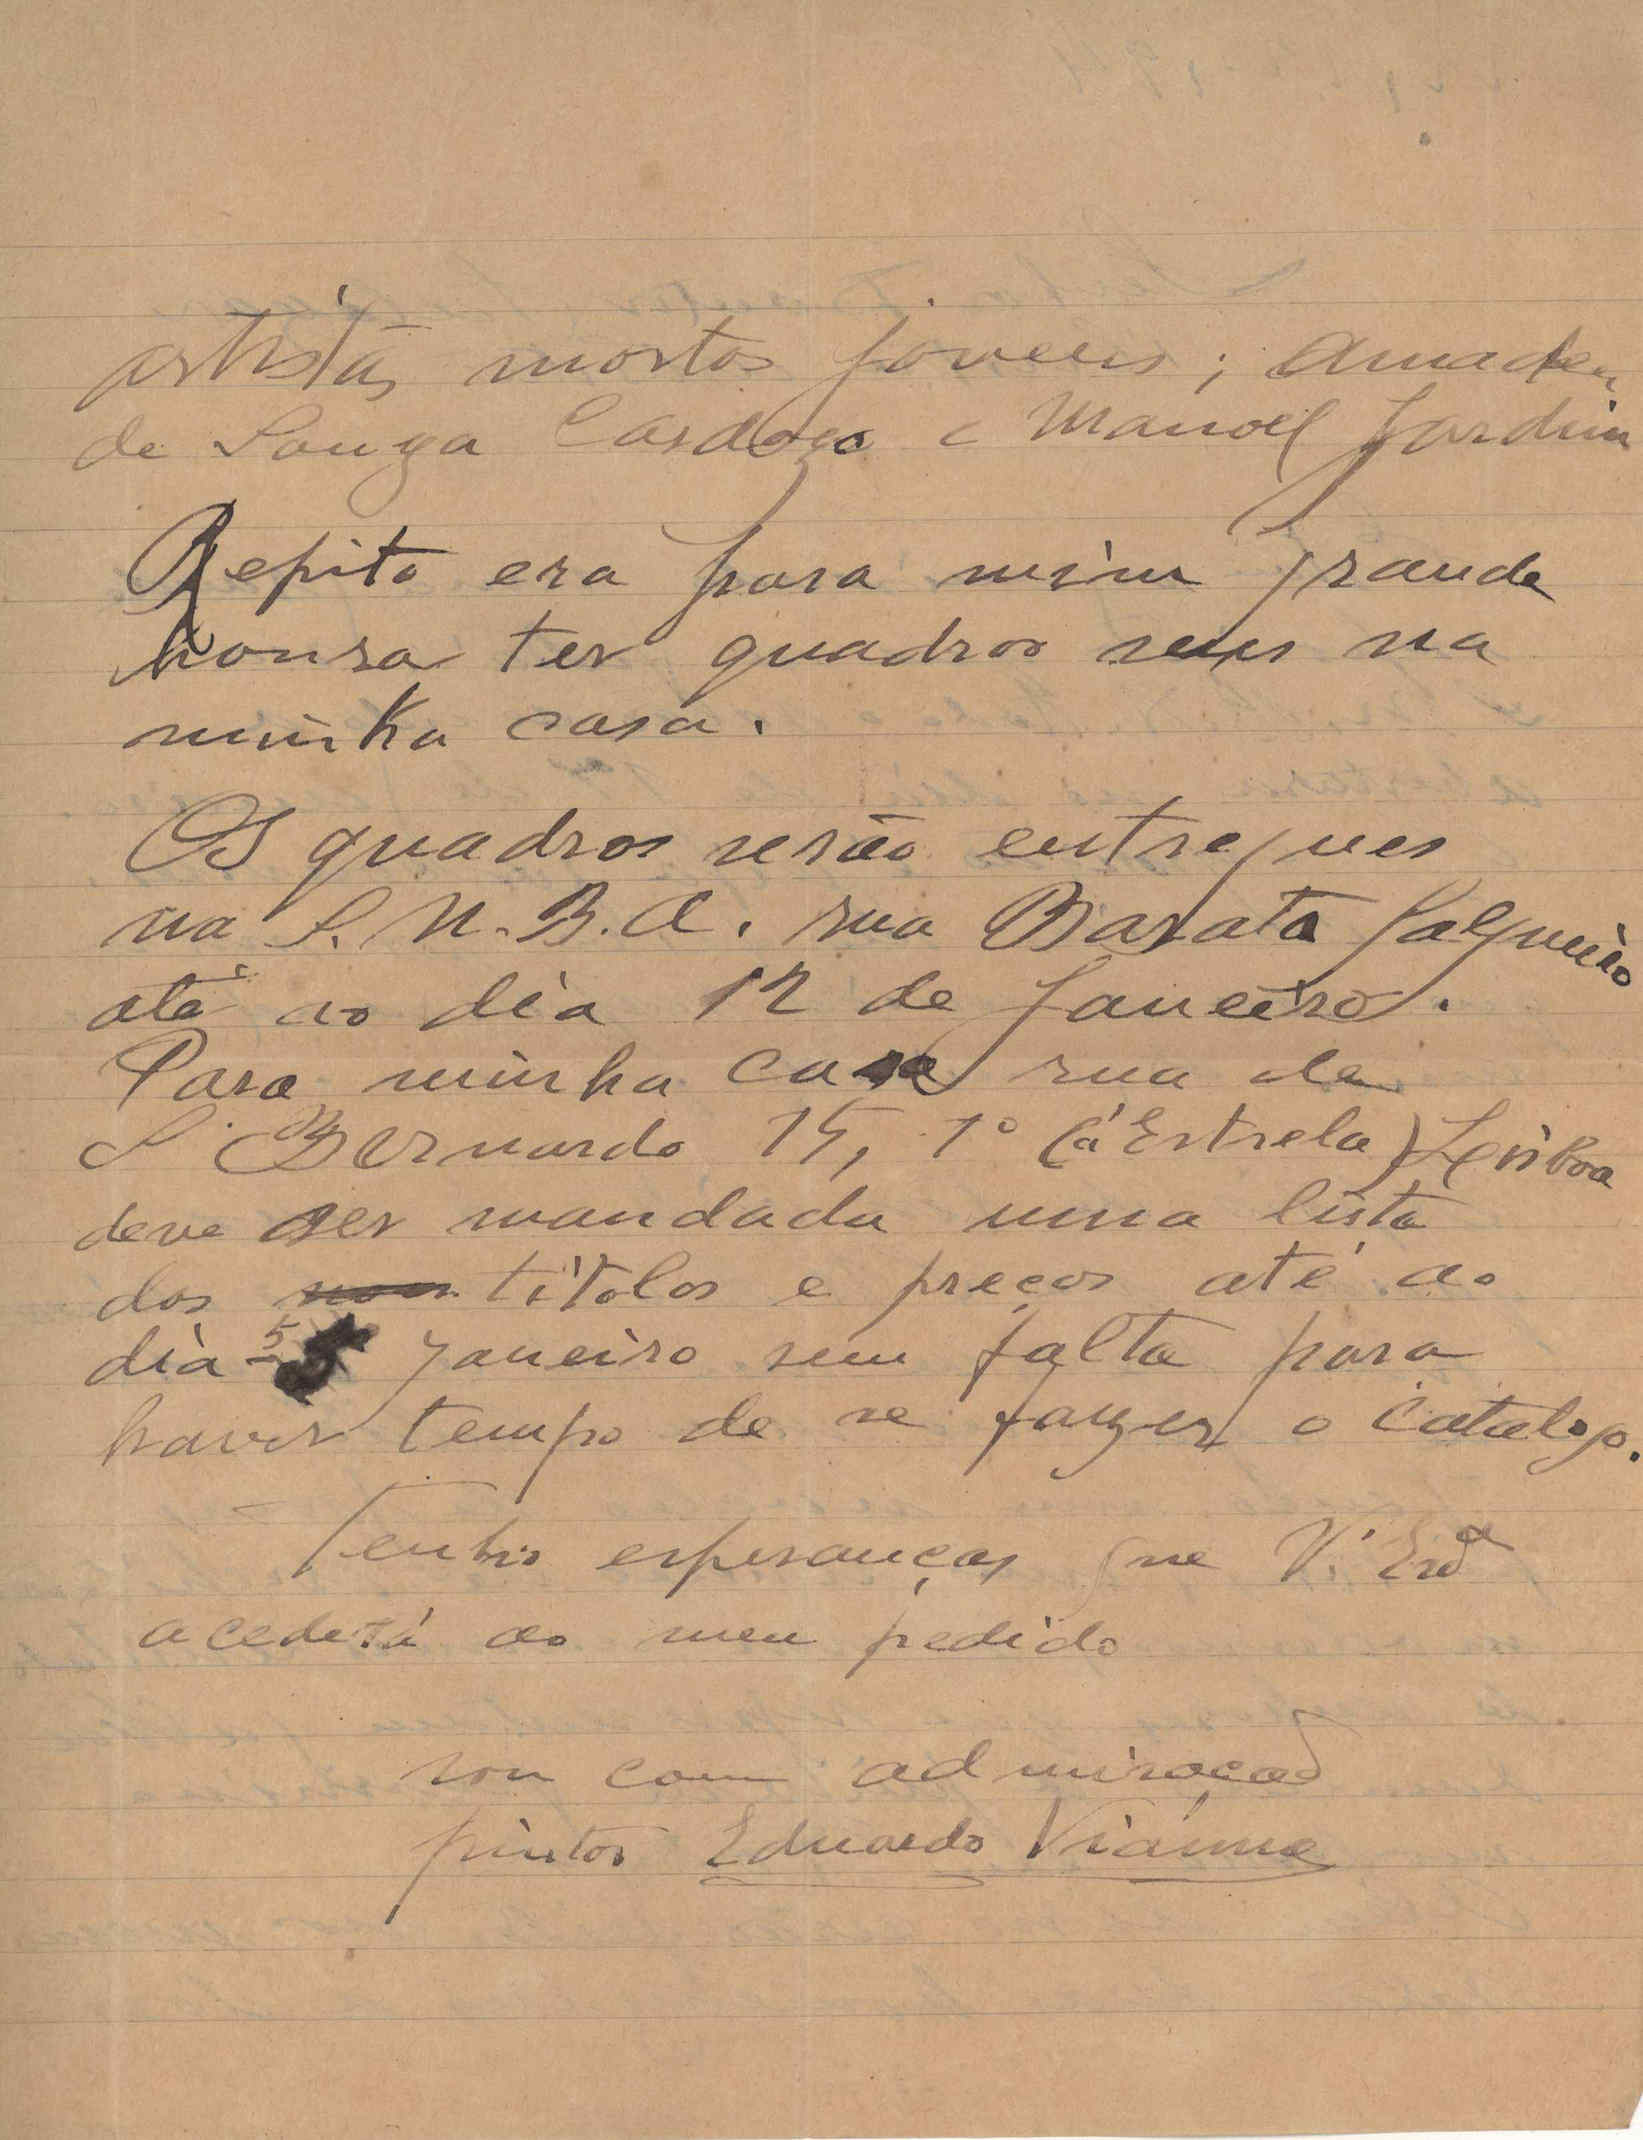 artistas mortos jovens; Amadeu
de Souza Cardozo e Manoel Jardim
Repito era para mim grande
honra ter quadros seus na
minha casa.
Os quadros serão entregues
na S. N. B. A. rua Barata Salgueiro
até ao dia 12 de Janeiro.
Para minha casa rua de
S. Bernardo 15, 1º (á Estrela) Lisboa
deve ser mandada uma lista
dos titolos e preços até ao
dia 5 Janeiro sem falta para
haver tempo de se fazer o catalogo.
Tenho esperanças que V. Exª
acederá ao meu pedido
sou com admiração
pintor Eduardo Vianna